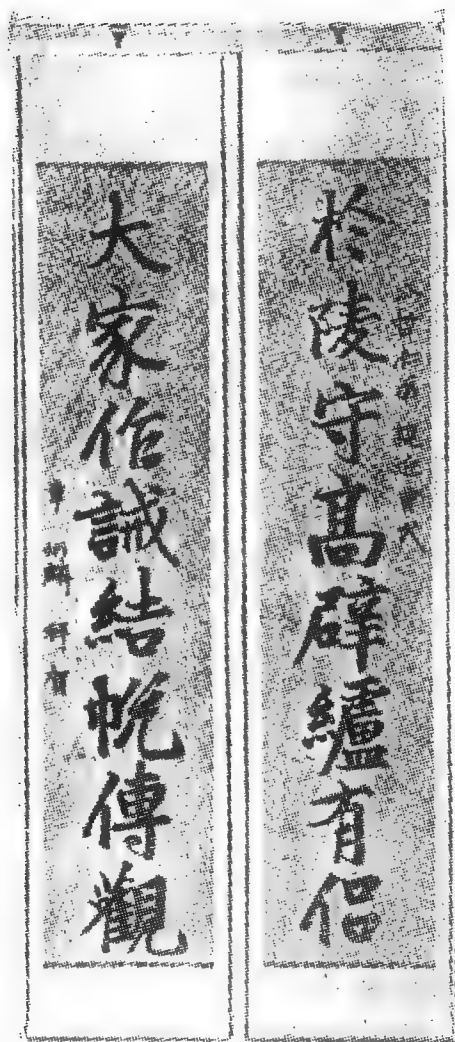 於陵守高辟纑有侣
大家作誡結帨傳觀